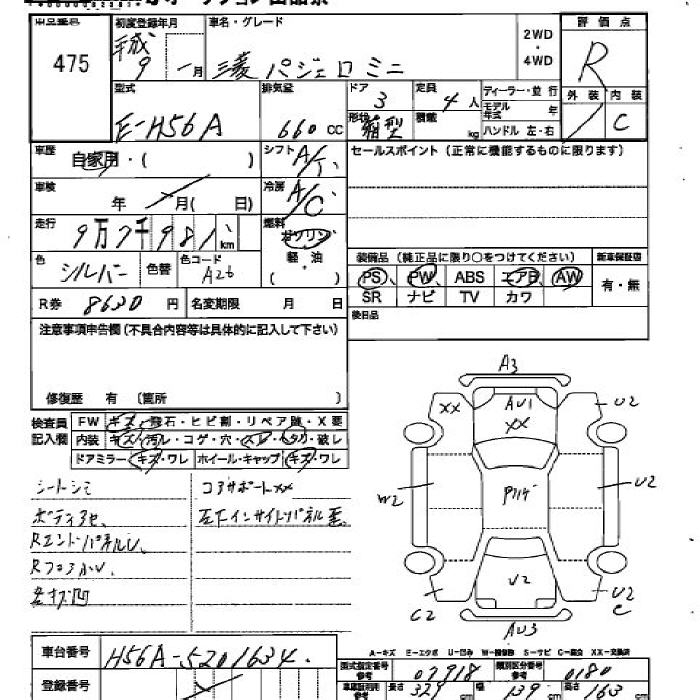 475
初度登録年月
平成
9 年 1月
車名・グレード
三菱 パジェロ ミニ
2WD
・
4WD
評 価 点
R
外 装 内 装
C
型式
E-H56A
排気量
660 CC
ドア
3
形状
箱型
定員
4 人
積載
kg
ディーラー・並 行
モデル
年式 年
ハンドル 左・右
車歴
自家用・( )
シフト
A/T
車検
年 月( 日)
冷房
A/C
セールスポイント(正常に機能するものに限ります)
走行
9万7千981 km
燃料
ガソリン
軽・油
( )
色
シルバー
色替
色コード
A26
装備品(純正品に限り○をつけてください)
新車保証書
PS、PW、ABS エアB AW
SR ナビ TV カワ
有・無
R券 8630 円
名変期限 月 日
後日品
注意事項申告欄(不具合内容等は具体的に記入して下さい)
修復歴 有 〔箇所 〕
検査員
記入欄
FW キズ・飛石・ヒビ割・リペア跡・X要
内装 キズ・汚レ・コゲ・穴・スレ・ヘタリ・破レ
ドアミラー キズ・ワレ ホイール・キャップ キズ・ワレ
シートシミ
コアサポートXX
ボディアセ、
左下インサイドパネル歪、
RエンドパネルU、
RフロアカU、
各キズ凹
A3
XX
AU1
XX
U2
W2
U2
U2
C2
U2
C
AU3
A-キズ E-エクボ U-凹み W-補修跡 S-サビ C-腐蝕 XX-交換済
車台番号
H56A-5201634.
登録番号
型式指定番号
参考
07918
類別区分番号
参考
0180
車庫証明用
参考
長さ 329 cm
幅 139 cm
高さ 163 cm